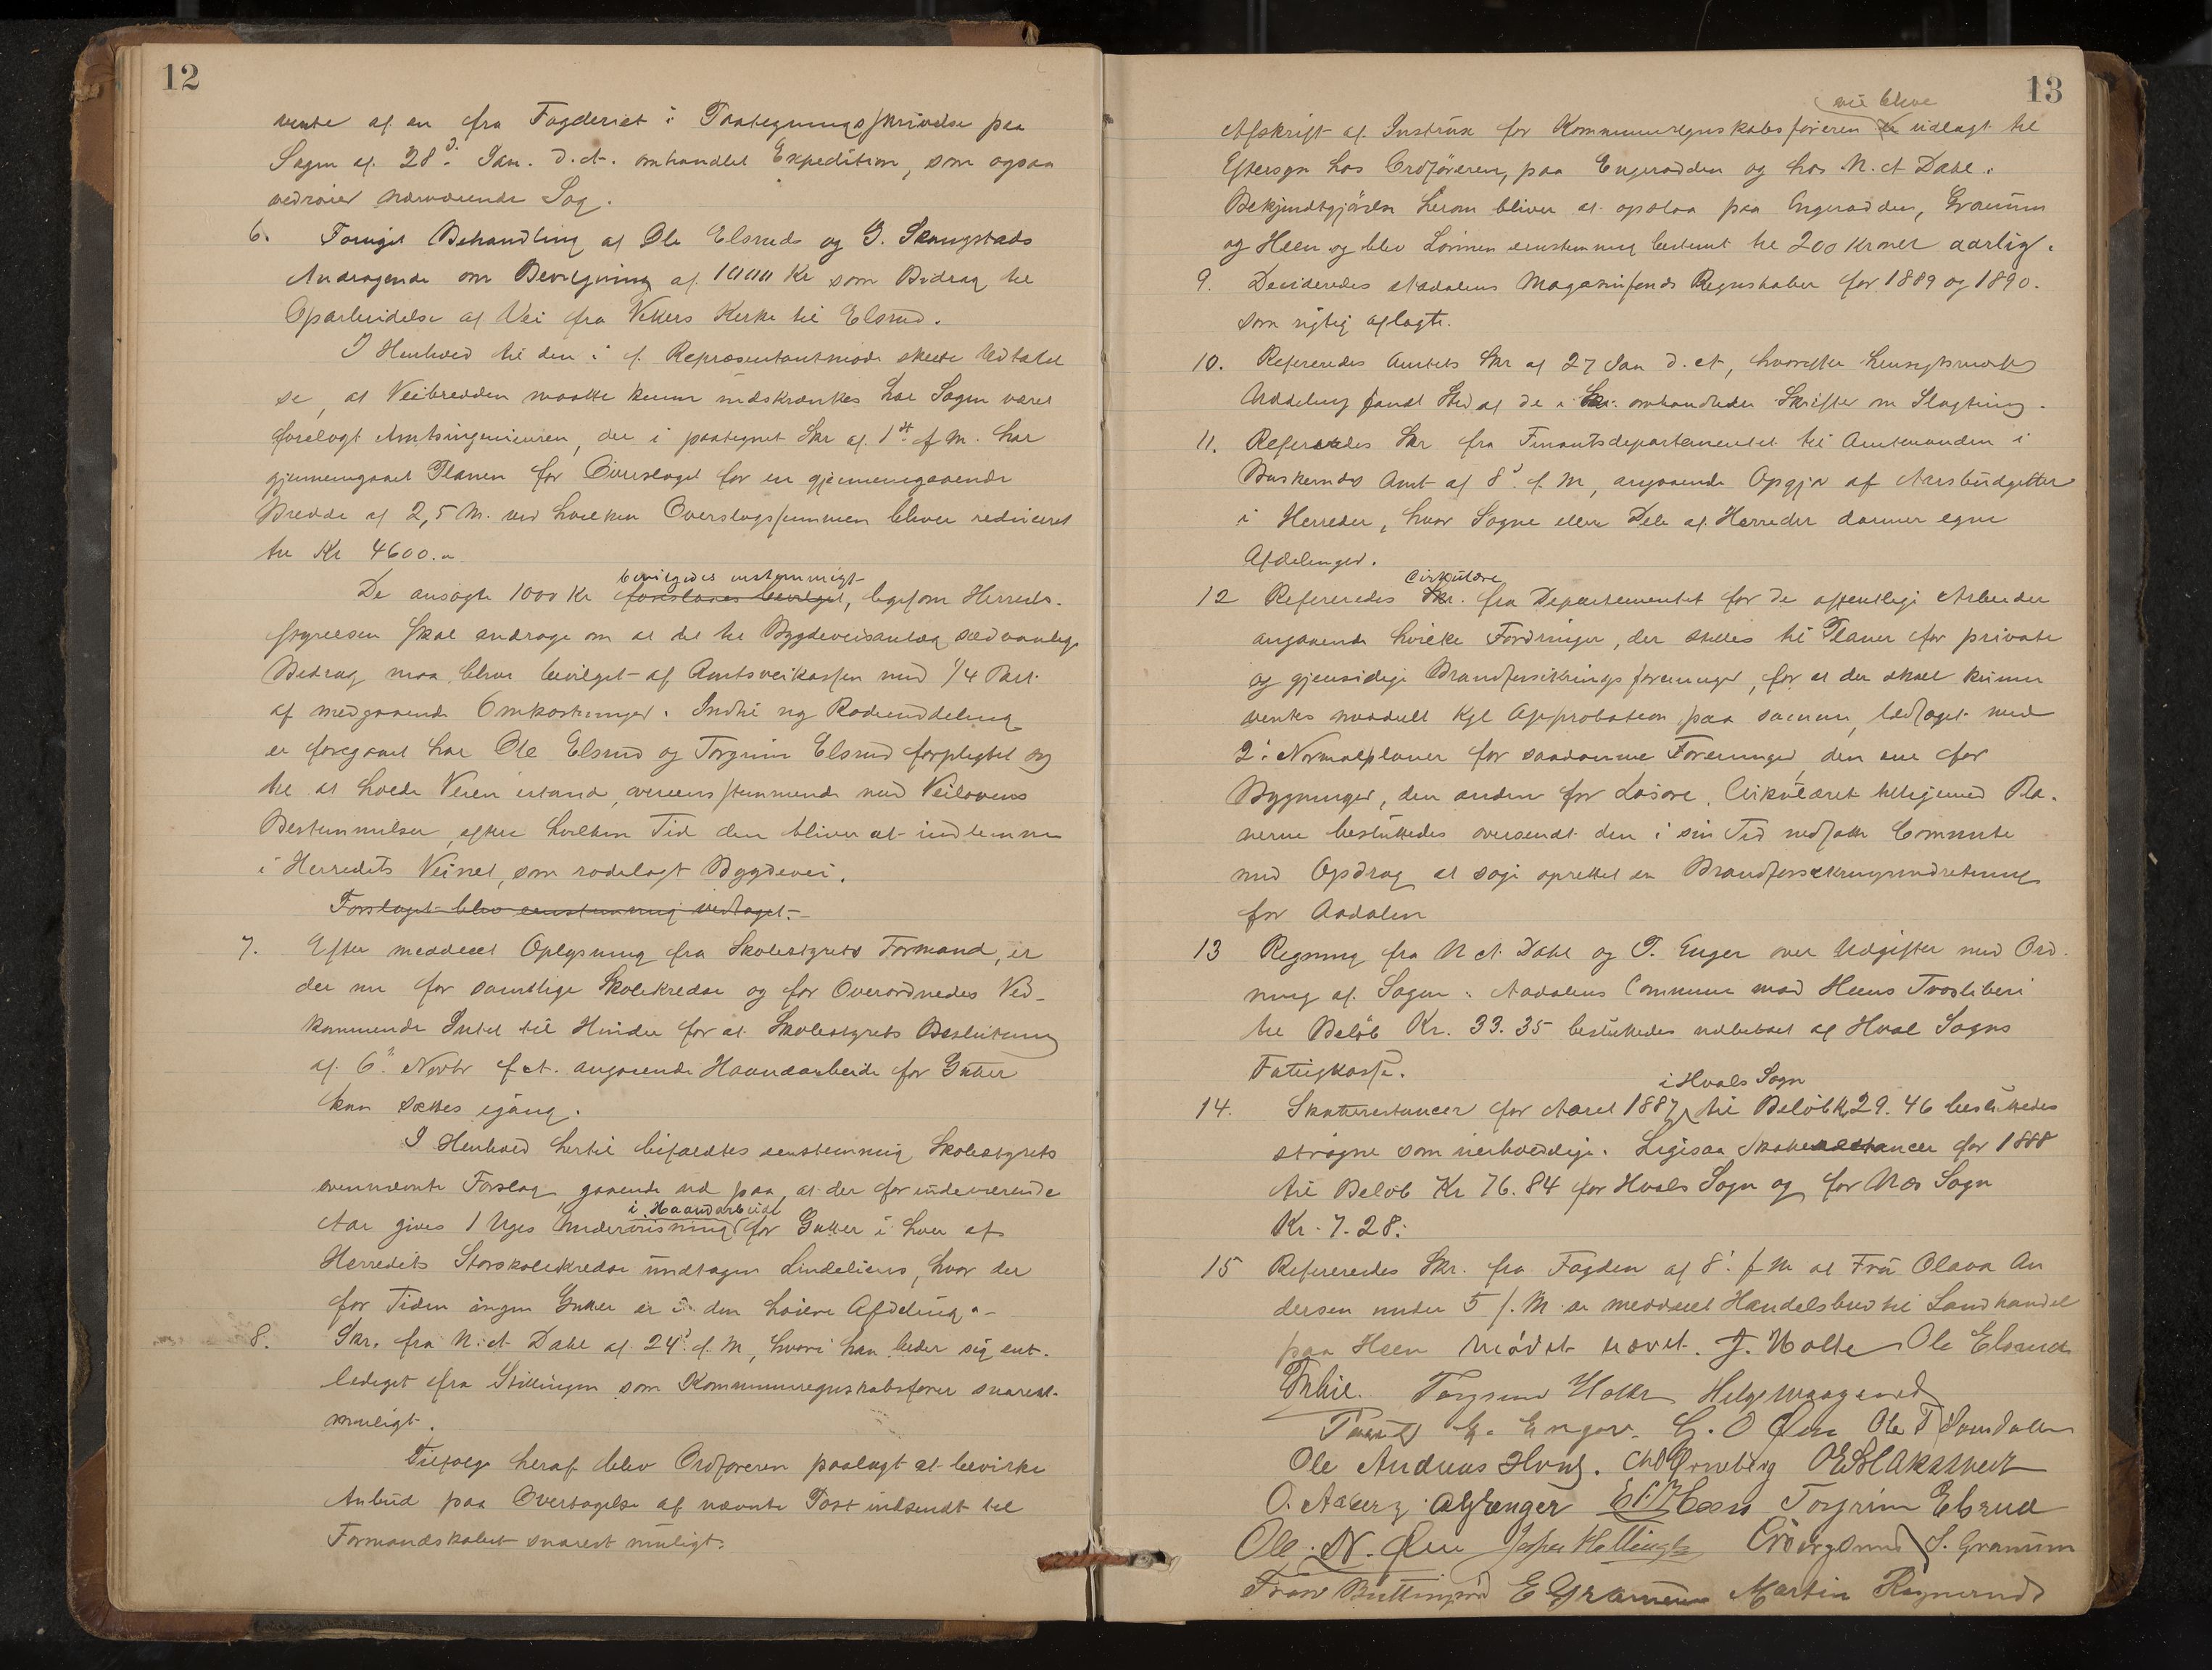 12
vente af en fra Fogderiet i Paategningsskrivelse paa
Sagen af 28d. Jan. d. A. omhandlet Expedition, som ogsaa
vedrører nærværende Sag.
6. Fornyet Behandling af Ole Elsruds og G. Skaugstads
Andragende om Bevilgning af 1000 Kr som Bidrag til
Oparbeidelse af Vei fra Vikers Kirke til Elsrud.
I Henhold til den i f. Repræsentantmøde skeete Udtalel
se, at Veibredden maatte kunne indskrænkes har Sagen været
forelagt Amtsingeniøren, der i paategnet Skr af 1st f M. har
gjennemgaaet Planen for Overslaget for en gjennemgaaende
Bredde af 2,5 M. ved hvilken Overslagssummen bliver reduceret
til Kr 4600.-
bevilgedes enstemmigt
De ansøgte 1000 Kr foreslaaes bevilget, ligesom Herreds-
styrelsen skal andrage om at det til Bygdeveisanlæg sædvanlige
Bidrag maa blive bevilget af Amtsveikassen med 1/4 Part
af medgaaende Omkostninger. Indtil ny Rodeinddeling
er foregaaet har Ole Elsrud og Torgrim Elsrud forpligtet sig
til at holde Veien istand, overensstemmende med Veilovens
Bestemmelser, efter hvilken Tid den bliver at indlemme
i Herredets Veinet, som rodelagt Bygdevei.
Forslaget blev eenstemmig vedtaget.-
7. Efter meddeelt Oplysning fra Skolestyrets Formand, er
der nu for samtlige Skolekredse og for Overordnedes Ved-
kommende Intet til Hinder for at Skolestyrets Beslutning
af 6te Novbr f A. angaaende Haandarbeide for Gutter
kan sættes igang.
I Henhold hertil bifaldtes eenstemmig Skolestyrets
ovennævnte Forslag gaaende ud paa, at der for indeværende
i Haandarbeide
Aar gives 1 Uges Undervisning for Gutter i hver af
Herredets Storskolekredse undtagen Lindeliens, hvor der
for Tiden ingen Gutter er i den høiere Afdeling.-
8. Skr. fra N. A. Dahl af 24d. f. M, hvori han beder sig ent-
lediget fra Stillingen som Kommuneregnskabsfører snarest
muligt.
Tilfølge heraf blev Ordføreren paalagt at bevirke
Anbud paa Overtagelse af nævnte Post indsendt til
Formandskabet snarest muligt.
13
vil blive
Afskrift af Instrux for Kommuneregnskabsføreren udlagt til
Eftersyn hos Ordføreren, paa Engerodden og hos N. A Dahl.
Bekjendtgjørelse herom bliver at opslaa paa Engerodden, Granum
og Heen og blev Lønnen eenstemmig bestemt til 200 Kroner aarlig.
9. Decideredes Aadalens Magasinfonds Regnskaber for 1889 og 1890.
som rigtig aflagte.
10. Refereredes Amtets Skr af 27 Jan d. A, hvorefter hensigtsmæssig
Uddeling fandt Sted af de i Skr. omhandlede Skrifter om Slagtning.
11. Refereredes Skr fra Finantsdepartementet til Amtmanden i
Buskeruds Amt af 8d f. M, angaaende Opgjør af Aarsbudgetter
i Herreder, hvor Sogne eller Dele af Herredet danner egne
Afdelinger.
Cirkulære
12 Refereredes Skr. fra Departementet for de offentlige Arbeider
angaaende hvilke Fordringer, der stilles til Planer for private
og gjensidige Brandforsikringsforeninger, for at der skal kunne
ventes meddelt Kgl Approbation paa samme, ledsaget med
2: Normalplaner for saadanne Foreninger, den ene for
Bygninger, den anden for Løsøre. Cirkulæret tilligemed Pla-
nerne besluttedes oversendt den i sin Tid nedsatte Committe
med Opdrag at søge oprettet en Brandforsikringsindretning
for Aadalen
13 Regning fra N A. Dahl og P. Enger over Udgifter med Ord-
ning af Sagen: Aadalens Commune mod Heens Træsliberi
til Beløb Kr. 33.35 besluttedes udbetalt af Hval Sogns
Fattigkasse.
i Hvals Sogn
14. Skatterestancer for Aaret 1887 til Beløb Kr 29.46 besluttedes
strøgne som uerholdelige. Ligesaa Skatterestancer for 1888
til Beløb Kr 76.84 for Hvals Sogn og for Næs Sogn
Kr. 7.28.
15 Refereredes Skr. fra Fogden af 8d. f M at Fru Olava An
dersen under 5 f. M. er meddeelt Handelsbrev til Landhandel
paa Heen Mødet hævet. J. Wolte Ole Elsrud
Torgrim Helge
E. Enger. G. O Øen Ole
Ole Andreas Hval.
O. Aaberg Torgrim Elsrud
Ole. N. Øen S. Granum
E Granum Martin